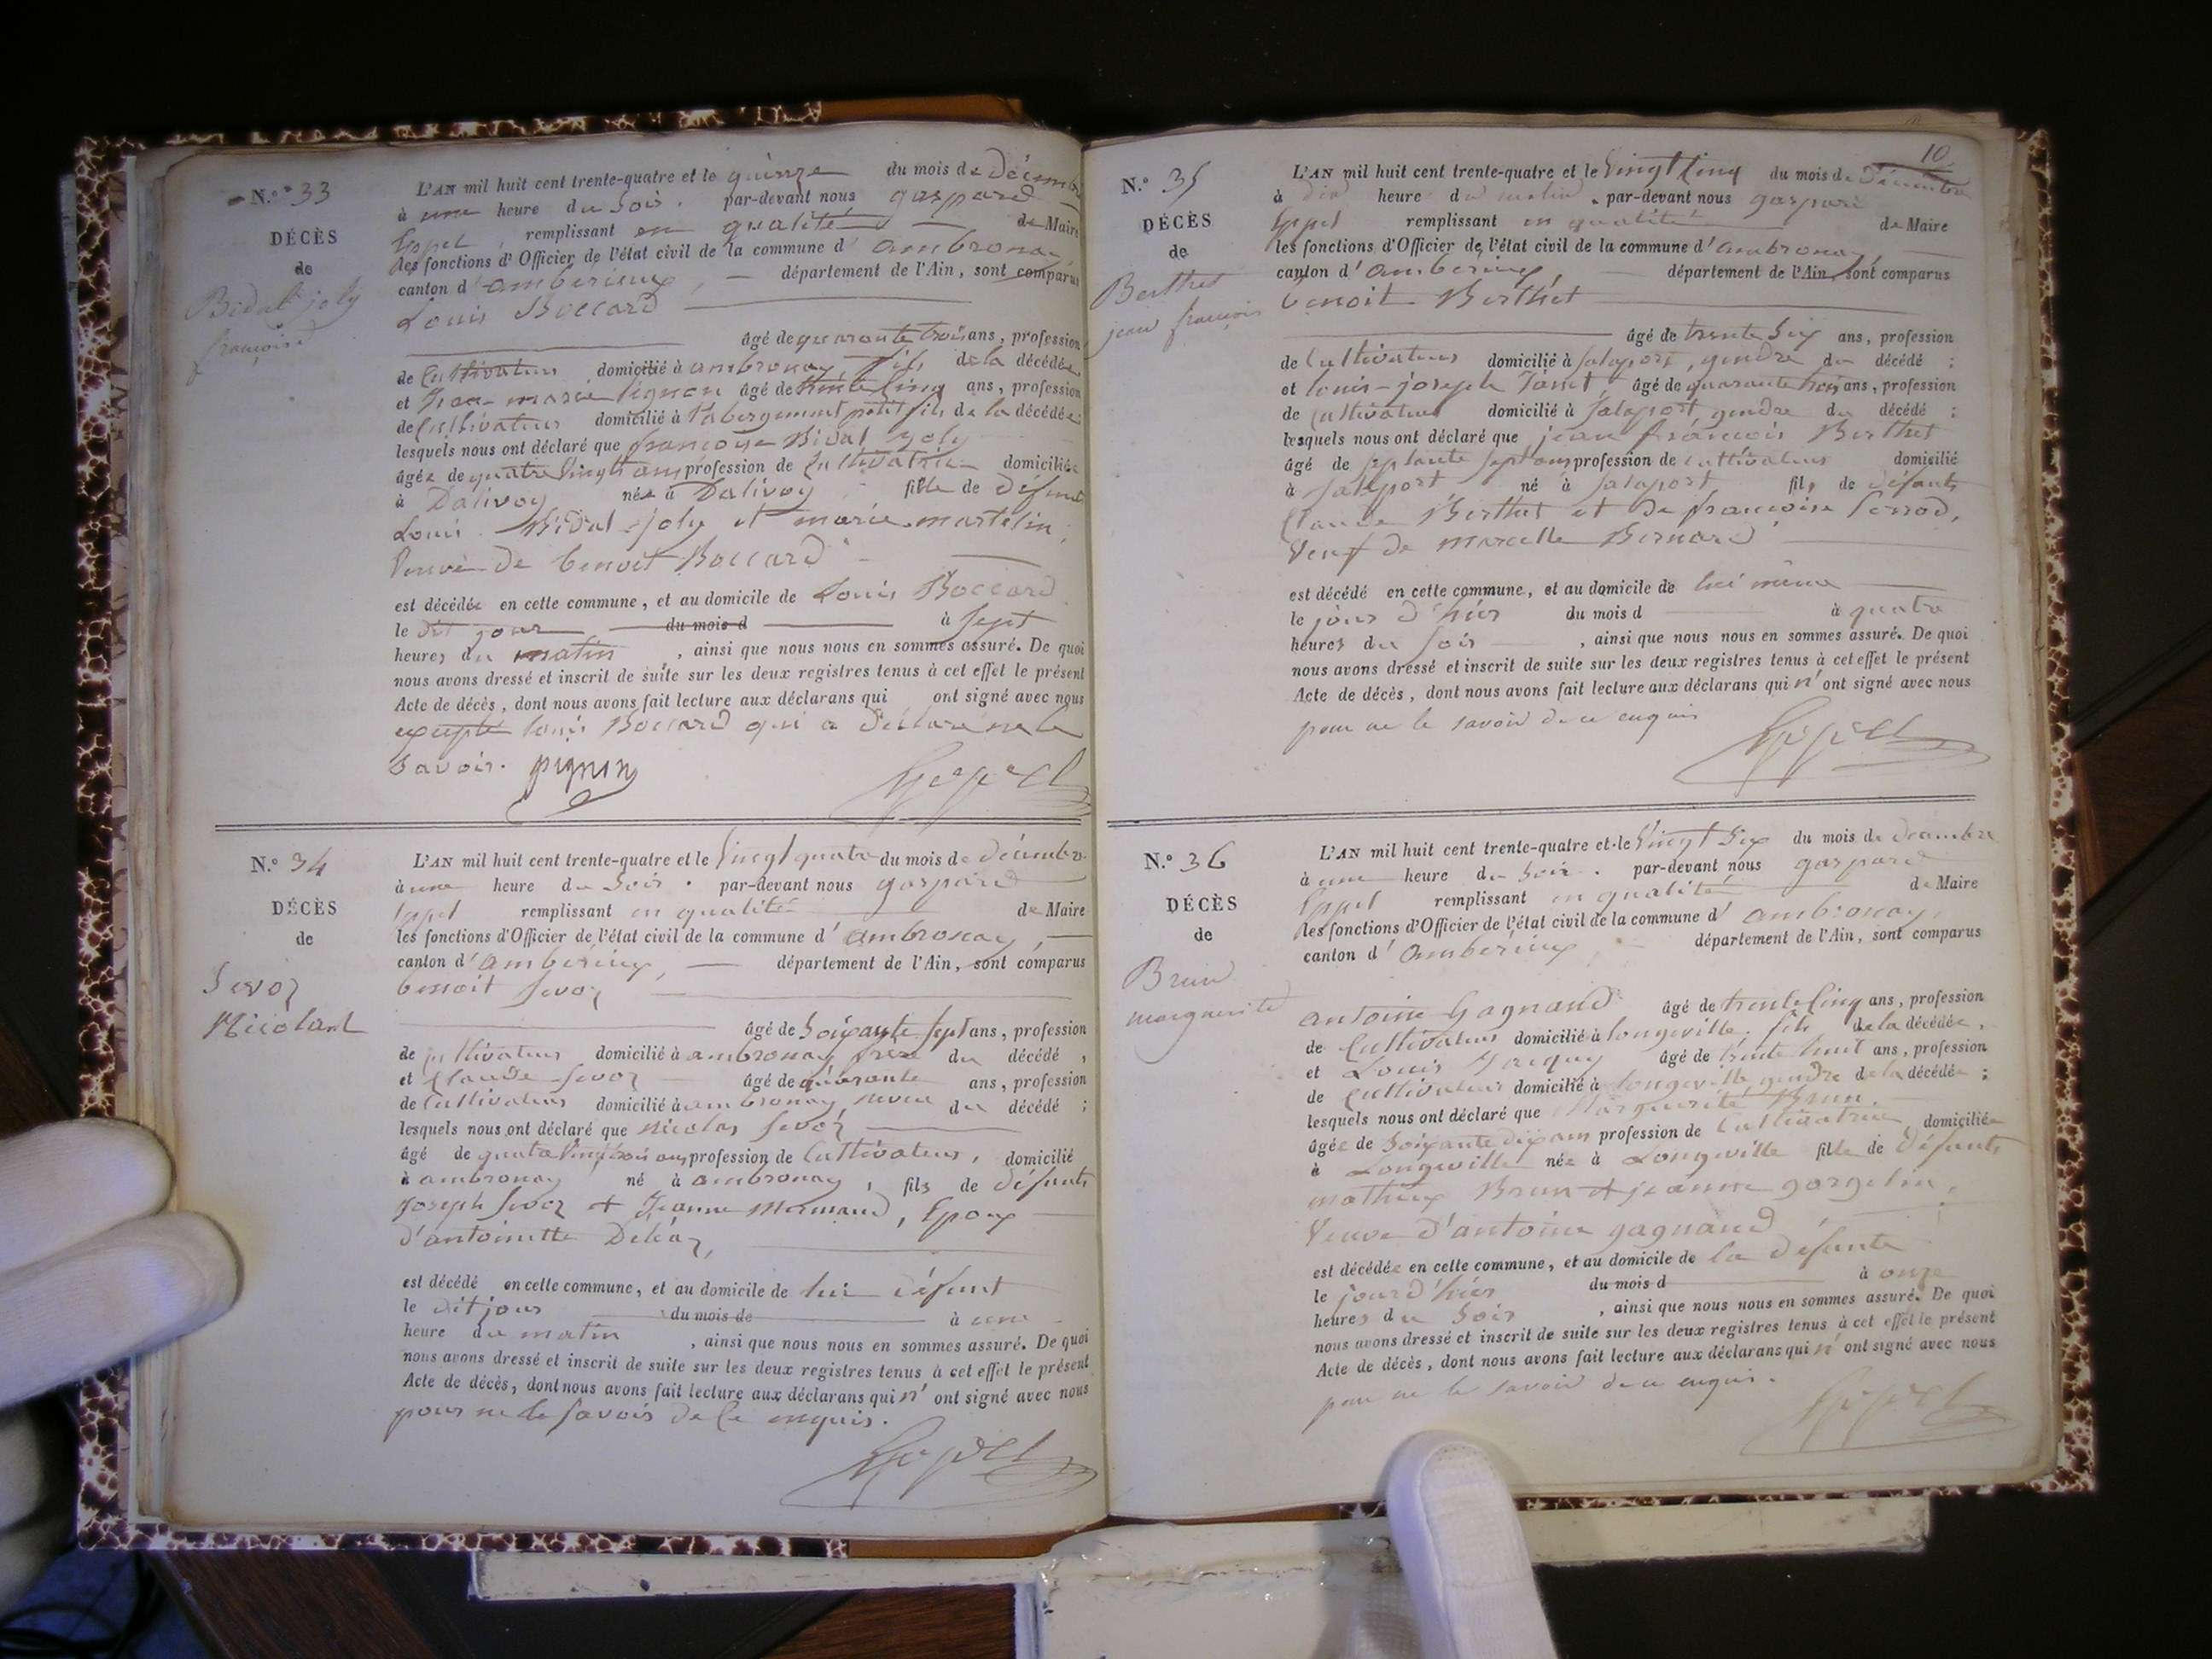 N.° 33
DÉCÈS
de
Bidal joly
françoise
L'AN mil huit cent trente-quatre et le quinze du mois de Décembre
à une heure du soir. par-devant nous gaspard
Eppel remplissant en qualité de Maire
les fonctions d'Officier de l'état civil de la commune d'ambronay
canton d'amberieux, département de l'Ain, sont comparus
Louis Boccard
âgé de quarante trois ans, profession
de Cultivateur domicilié à ambronay, fils de la décédée,
et Jean-marie pignon âgé de trente cinq ans, profession
de Cultivateur domicilié à l'abergement petit fils de la décédée;
lesquels nous ont déclaré que françoise Bidal joly
âgée de quatre vingt ans profession de Cultivatrice domiciliée
à Dalivoy née à Dalivoy fille de défunt
Louis Bidal-joly et marie martelin,
Veuve de benoit Boccard
est décédée en cette commune, et au domicile de Louis Boccard
le dit jour du mois d à sept
heures du matin, ainsi que nous nous en sommes assuré. De quoi
nous avons dressé et inscrit de suite sur les deux registres tenus à cet effet le présent
Acte de décès, dont nous avons fait lecture aux déclarans qui ont signé avec nous
excepté louis Boccard qui a déclaré ne le
savoir. pignon Eppel
N.° 34
DÉCÈS
de
Sevoz
Nicolas
L'AN mil huit cent trente-quatre et le vingt quatre du mois de décembre
à une heure du soir. par-devant nous gaspard
Eppel remplissant en qualité de Maire
les fonctions d'Officier de l'état civil de la commune d'ambronay,
canton d'amberieux, département de l'Ain, sont comparus
benoit Sevoz
âgé de soixante sept ans, profession
de cultivateur domicilié à ambronay frère du décédé,
et Claude Sevoz âgé de quarante ans, profession
de Cultivateur domicilié à ambronay neveu du décédé;
lesquels nous ont déclaré que nicolas Sevoz
âgé de quatre vingt trois ans profession de Cultivateur, domicilié
à ambronay né à ambronay, fils de défunts
Joseph Sevoz et Jeanne Mermand, Epoux
d'antoinette
est décédé en cette commune, et au domicile de lui défunt
le dit jour du mois de à une
heure du matin, ainsi que nous nous en sommes assuré. De quoi
nous avons dressé et inscrit de suite sur les deux registres tenus à cet effet le présent
Acte de décès, dont nous avons fait lecture aux déclarans qui n'ont signé avec nous
pour ne le savoir de ce enquis.
Eppel
10
N.° 35
DÉCÈS
de
Berthet
jean françois
L'AN mil huit cent trente-quatre et le vingt cinq du mois de Décembre
à dix heure du matin. par-devant nous gaspard
Eppel remplissant en qualité de Maire
les fonctions d'Officier de l'état civil de la commune d'ambronay
canton d'amberieux, département de l'Ain, sont comparus
benoit Berthet
âgé de trente six ans, profession
de Cultivateur domicilié à salaport, gendre du décédé;
et louis-joseph âgé de quarante trois ans, profession
de Cultivateur domicilié à salaport, gendre du décédé;
lesquels nous ont déclaré que jean françois Berthet
âgé de septante sept ans profession de cultivateur domicilié
à salaport né à salaport fils de défunts
Claude Berthet et de françoise
Veuf de marcelle Bernard
est décédé en cette commune, et au domicile de lui même
le jour d'hier du mois d à quatre
heures du soir, ainsi que nous nous en sommes assuré. De quoi
nous avons dressé et inscrit de suite sur les deux registres tenus à cet effet le présent
Acte de décès, dont nous avons fait lecture aux déclarans qui n'ont signé avec nous
pour ne le savoir de ce enquis
Eppel
N.° 36
DÉCÈS
de
Brun
marguerite
L'AN mil huit cent trente-quatre et le vingt six du mois de décembre
à une heure du soir. par-devant nous gaspard
Eppel remplissant en qualité de Maire
les fonctions d'Officier de l'état civil de la commune d'ambronay,
canton d'amberieux département de l'Ain, sont comparus
antoine Gagnaud âgé de trente cinq ans, profession
de Cultivateur domicilié à longeville, fils de la décédée,
et Louis Jacquy âgé de trente huit ans, profession
de cultivateur domicilié à longeville gendre de la décédée;
lesquels nous ont déclaré que Marguerite Brun
âgée de soixante dix ans profession de Cultivatrice domiciliée
à Longeville née à Longeville fille de défunts
mathieux Brun et jeanne gorgelin,
Veuve d'antoine gagnaud
est décédée en cette commune, et au domicile de la défunte
le jour d'hier du mois d à onze
heures du soir, ainsi que nous nous en sommes assuré. De quoi
nous avons dressé et inscrit de suite sur les deux registres tenus à cet effet le présent
Acte de décès, dont nous avons fait lecture aux déclarans qui n'ont signé avec nous
pour ne le savoir de ce enquis.
Eppel